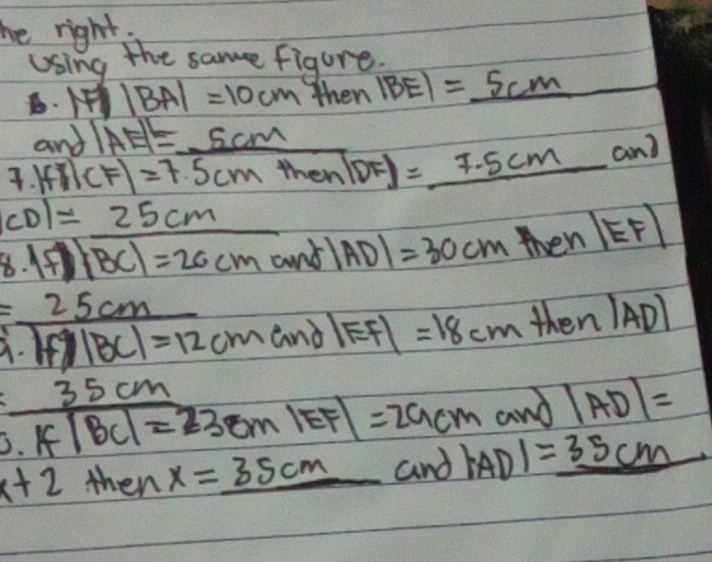 he right.
Using the same figure.
6. If |BA| = 10cm then |BE| = 5cm
and |AE| = 5cm
7. If |CF| = 7.5cm then |DF| = 7.5cm and
|CD| = 25cm
8. If |BC| = 20cm and |AD| = 30cm then |EF|
= 25cm
9. If |BC| = 12cm and |EF| = 18cm then |AD|
= 35cm
0. If |BC| = 23cm |EF| = 29cm and |AD| =
x+2 then x = 35cm and |AD| = 35cm